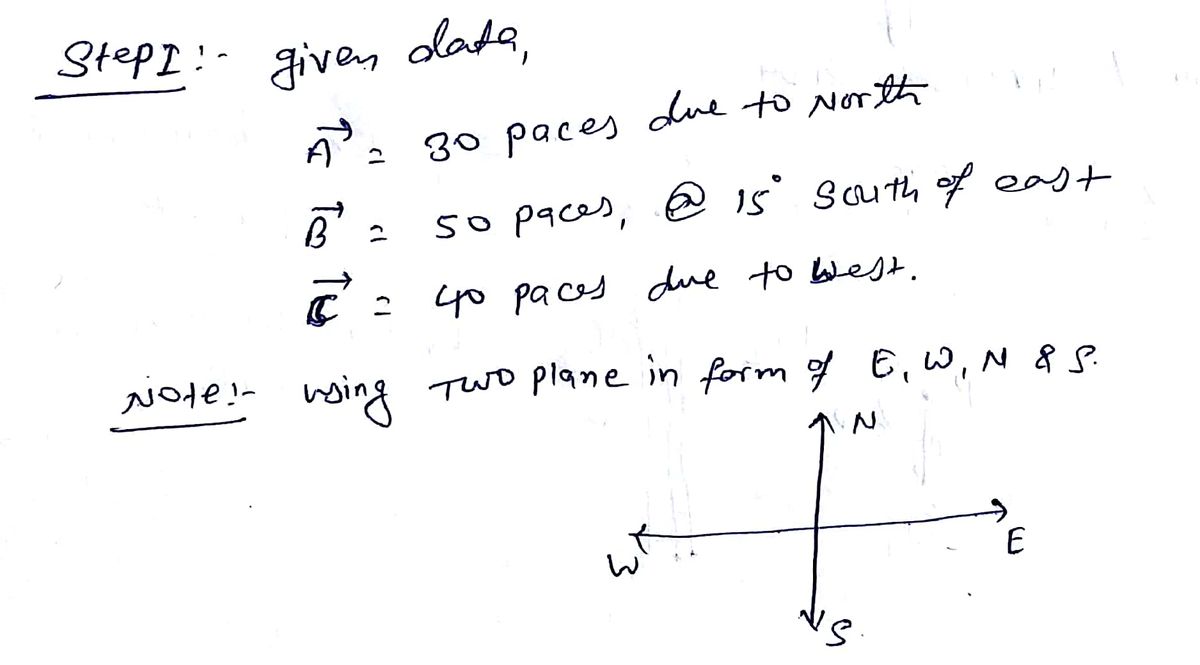 Step I :- given data,
A = 30 paces due to North
B = 50 paces, @ 15° South of east
C = 40 paces due to west.
Note :- using TWO plane in form of E, W, N & S.
N
W
E
S